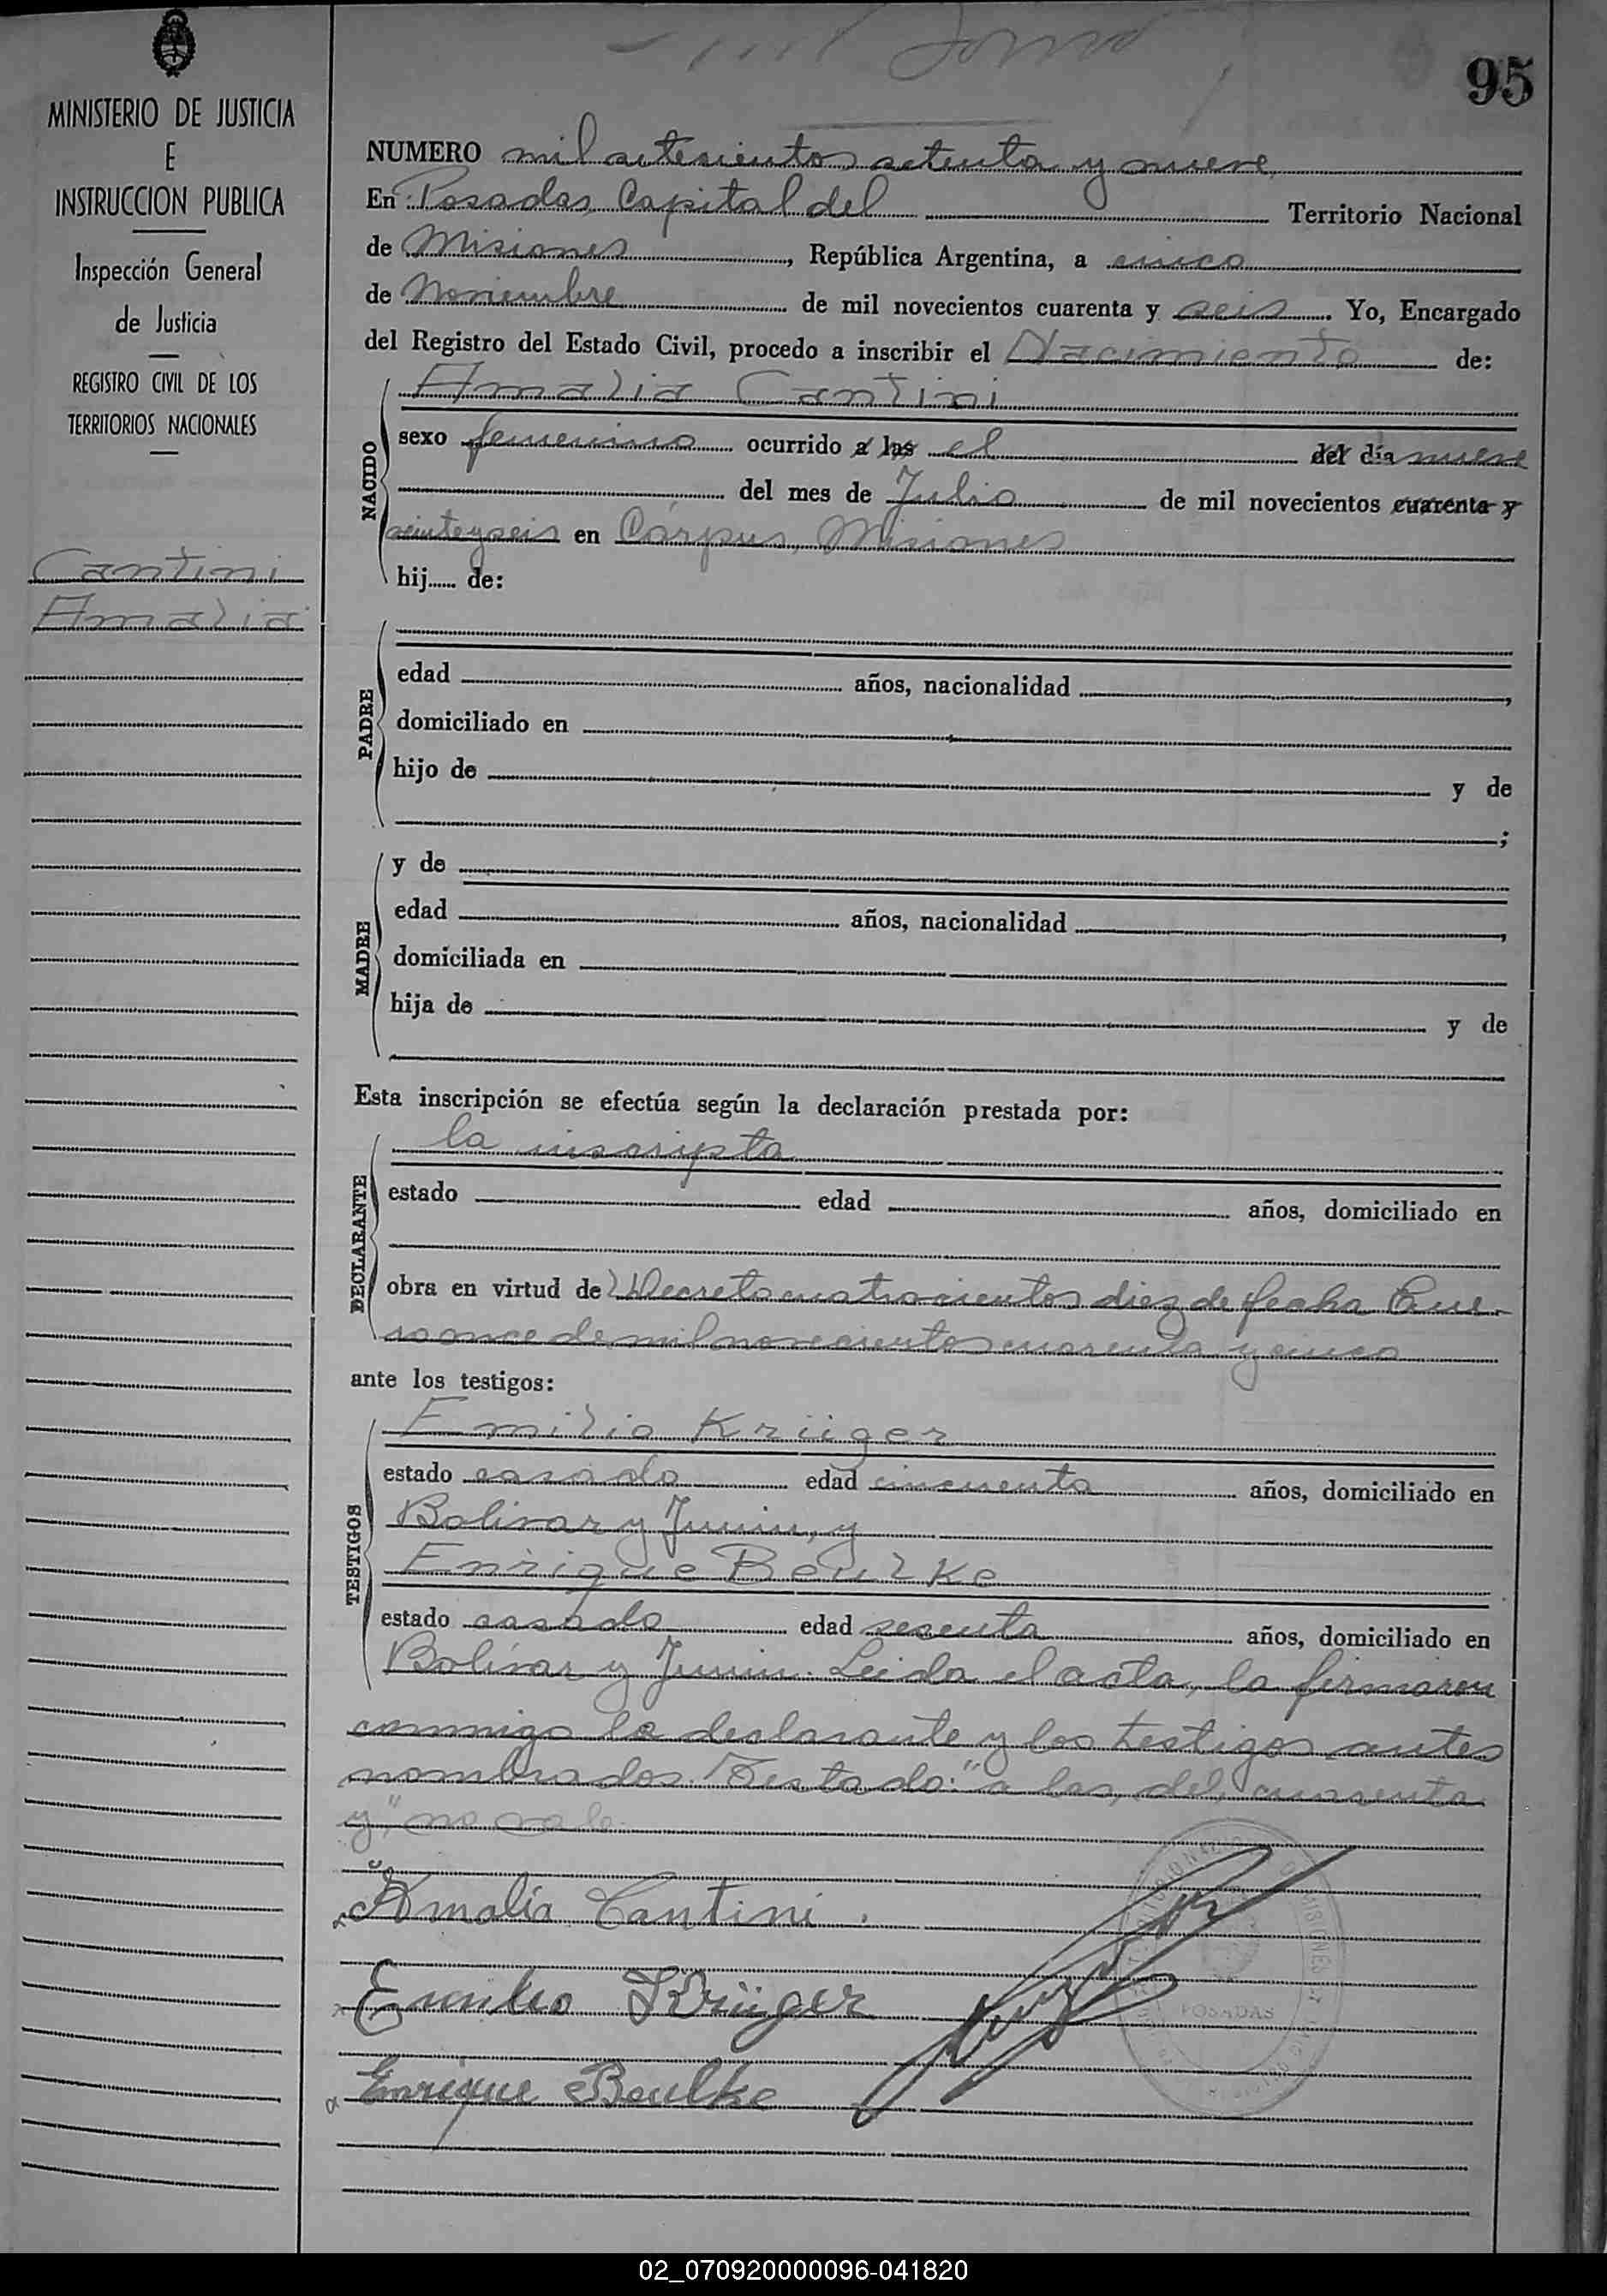 95
MINISTERIO DE JUSTICIA
E
INSTRUCCION PUBLICA
Inspección General
de Justicia
REGISTRO CIVIL DE LOS
TERRITORIOS NACIONALES
Cantini
Amalia
NUMERO mil setecientos setenta y nueve
En Posadas, Capital del Territorio Nacional
de Misiones, República Argentina, a cinco
de Noviembre de mil novecientos cuarenta y seis. Yo, Encargado
del Registro del Estado Civil, procedo a inscribir el Nacimiento de:
NACIDO
Amalia Cantini
sexo femenino ocurrido a las el del día nueve
del mes de Julio de mil novecientos cuarenta y
veinteyseis en Corpus, Misiones
hij...... de:
PADRE
edad años, nacionalidad
domiciliado en
hijo de y de
;
MADRE
y de
edad años, nacionalidad
domiciliada en
hija de y de
Esta inscripción se efectúa según la declaración prestada por:
DECLARANTE
la inscripta
estado edad años, domiciliado en
obra en virtud de Decreto cuatrocientos diez de fecha Ene-
ro once de mil novecientos cuarenta y cinco
ante los testigos:
TESTIGOS
Emilio Krüger
estado casado edad cincuenta años, domiciliado en
Bolivar y Junin, y
Enrique Beulke
estado casado edad sesenta años, domiciliado en
Bolívar y Junin. Leida el acta, la firmaron
conmigo la declarante y los testigos antes
nombrados. Testado: "a las, del, cuarenta
y" no vale.
Amalia Cantini.
Emilio Krüger
Enrique Beulke
MISIONES
POSADAS
02_070920000096-041820